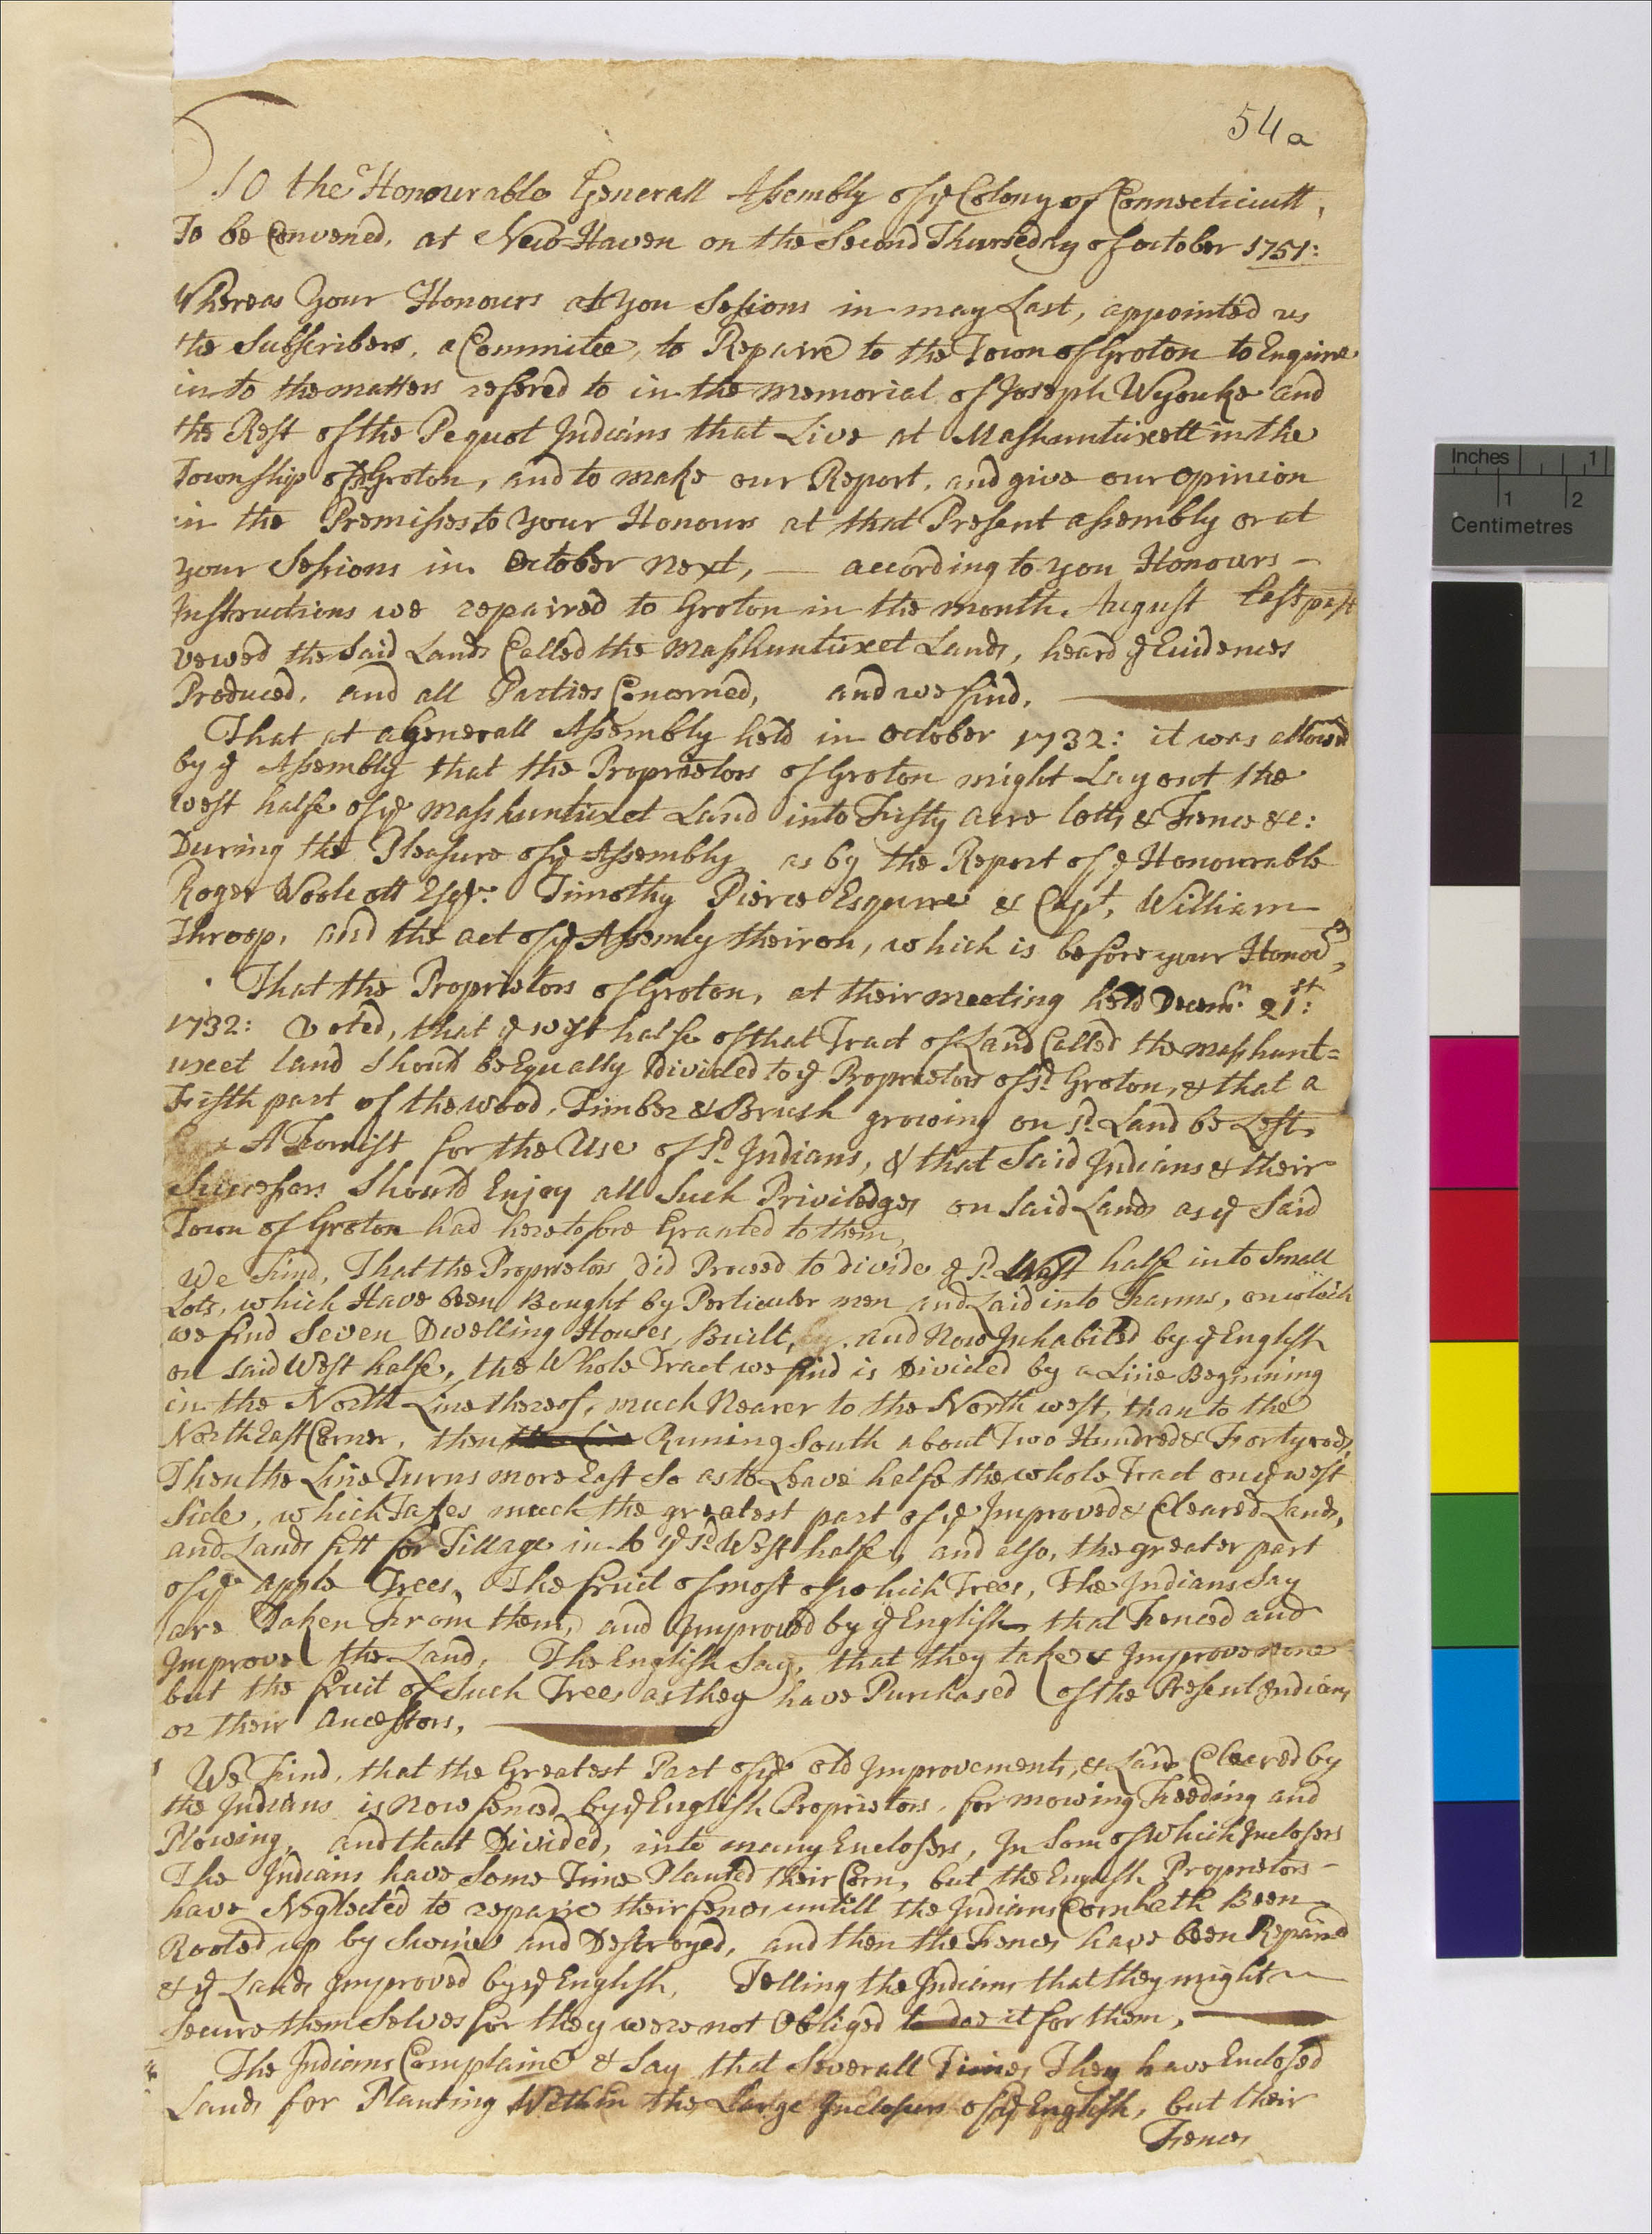 54a
To the Honourable Generall Assembly of ye Colony of Connecticutt,
To be Convened, at New Haven on the Second Thursday of october 1751:
Whereas Your Honours at you Sesions in may Last, appointed us
the Subscribers, a Commitee, to Repaire to the Town of Groton to Enquire
in to the matters refered to in the memorial of Joseph Wyouke and
the Rest of the Pequot Indians that Live at Mashuntuxett in the
Township of sd Groton, and to make our Report, and give our opinion
in the Premises to Your Honours at that Present assembly or at
your Sessions in October Next, — according to you Honours -
Instructions we repaired to Groton in the month August last past
vewed the Said Lands Called the Mashuntuxet Lands, heard ye Evidences
Produced, and all Parties Concerned, and we find,
That at a Generall Assembly held in October 1732: it was allowed
by ye Assembly that the Proprietors of Groton might Lay out the
west halfe of ye Mashuntuxet Land into Fifty acre lotts & Fence &c:
During the Pleasure of ye Assembly as by the Report of ye Honourable
Roger Woolcott Esqr. Timothy Pierce Esquire & Capt. William
Throop, and the act of ye Assemly theiron, which is before your Honors,
That the Proprietors of Groton, at their meeting held Decemr. 21st:
1732: Voted, that ye west halfe of that Tract of Land Called the mashunt=
uxeet land Should be Equally Divided to ye Proprietors of sd Groton, & that a
Fifth part of the wood, Timber & Brush growing on sd Land be Left,
A Forrist for the Use of sd Indians, & that Said Indians & their
Successors Should Enjoy all Such Priviledges on Said Lands as ye Said
Town of Groton had heretofore Granted to them,
We Find, That the Proprietors Did Proceed to divide ye sd West halfe into Small
Lots, which Have been Bought by Perticuler men and Laid into Farms, on which
we find Seven Dwelling Houses, Built, and Now Inhabited by ye English
on Said West halfe, the Whole Tract we find is Divided by a Line Beginning
in the North Line thereof, much Nearer to the North west, than to the
North East Corner, then the line Runing South about Two Hundred & Forty rods,
Then the Line Turns more East So as to Leave halfe the whole Tract on ye west
Side, which Takes much the greatest part of ye Improved & Cleared Lands,
and Lands fitt for Tillage in to ye sd West halfe, and also, the greater part
of ye apple Trees, The fruit of most of which Trees, The Indians Say
are Taken From them, and Improved by ye English that Fenced and
Improve the Land, The English Say, that they take & Improve none
but the fruit of Such Trees as they have Purchased of the Present Indians
or their Ancestors,
We Find, that the Greatest Part of ye old Improvements, & Land Cleared by
the Indians is Now fenced by ye English Proprietors, for mowing Feeding and
Plowing, and that Divided, into many Enclosers, In Som of which Inclosers
The Indians have Some Time Planted their Corn, but the English Proprietors -
have Neglected to repaire their fences untill the Indians Corn hath Been
Rooted up by Swine and Destroyed, and then the Fences have been Repaired
& ye Lands Improved by ye English, Telling the Indians that they might
Secure them Selves for they were not Obliged to doe it for them,
The Indians Complaine & Say that Severall Times They have Enclosed
Lands for Planting Within the Large Inclosures of ye English, but their
Fences
Inches 1
1 2
Centimetres